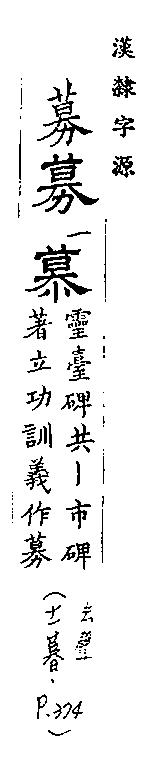 漢隸字源
募募一慕
靈臺碑共丨市碑
著立功訓義作募
去聲
(十一暮、
P.374)